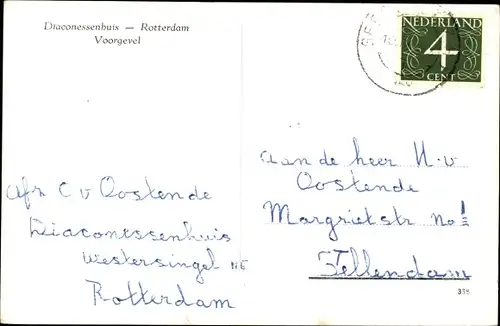 Diaconessenhuis — Rotterdam
Voorgevel
NEDERLAND
4
CENT
Afz C v Oostende
Diaconessenhuis
Westersingel
Rotterdam
aan de heer H. v
Oostende
Margrietstr No 1
Stellendam
338